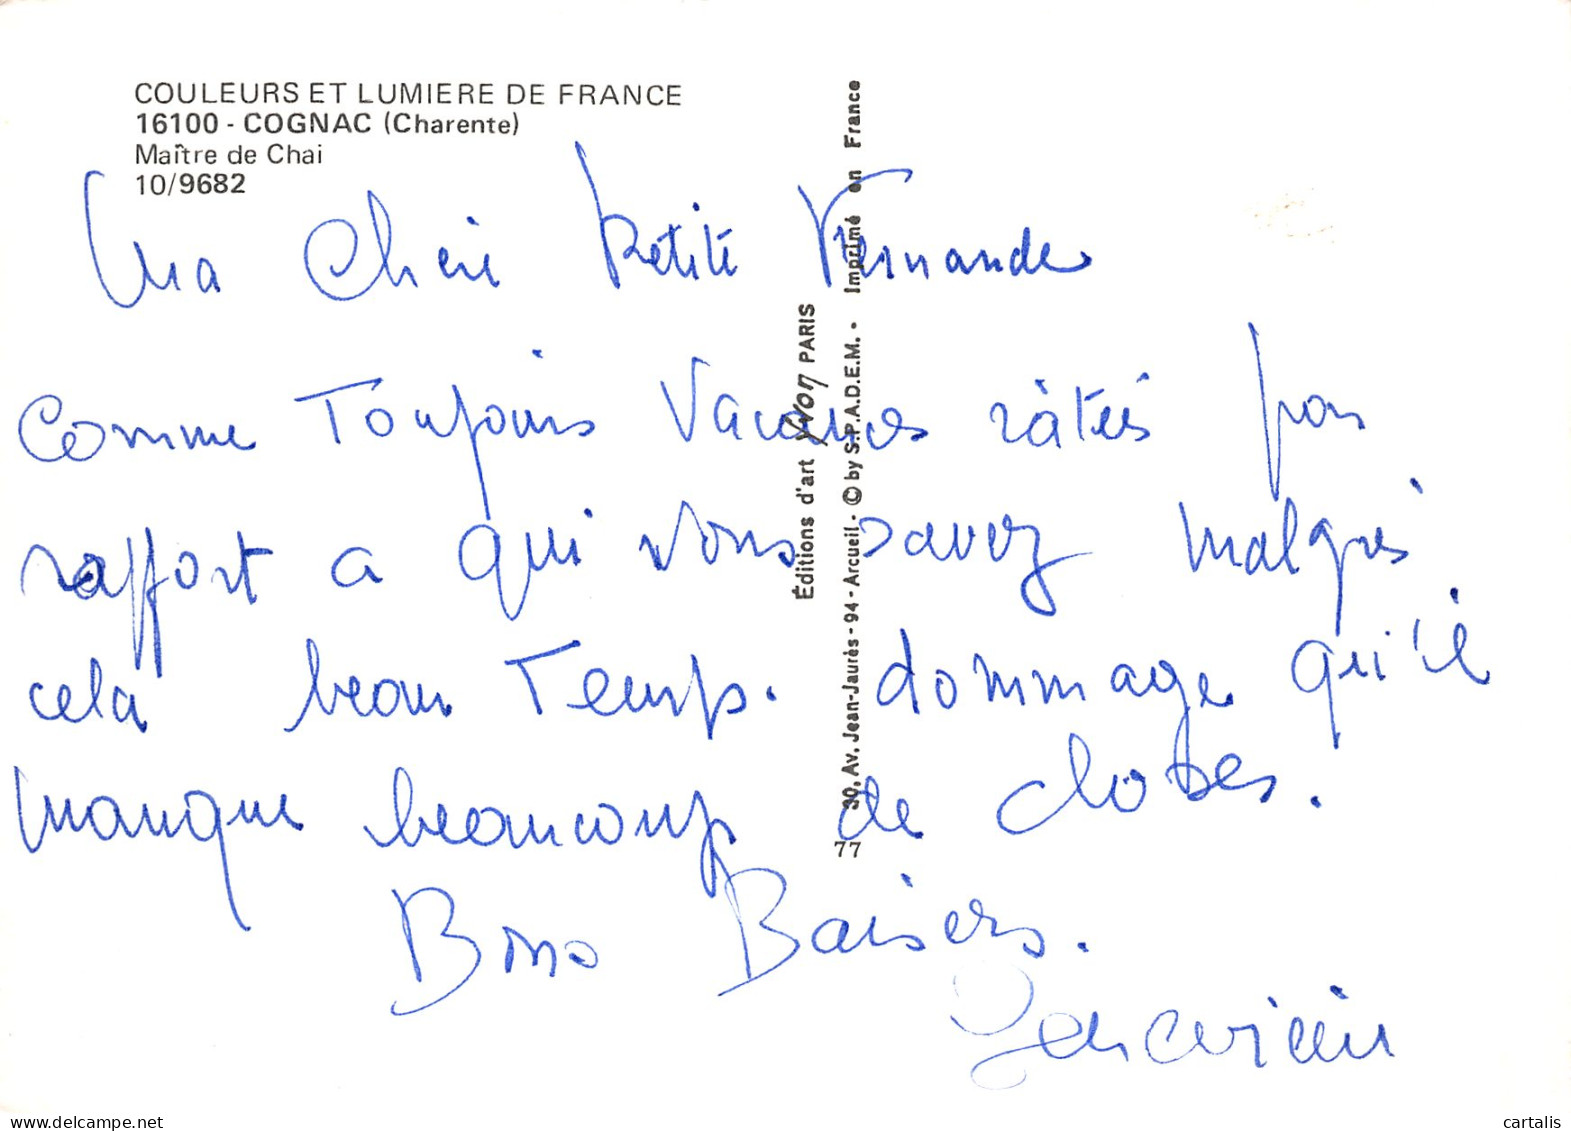 COULEURS ET LUMIERE DE FRANCE
16100 - COGNAC (Charente)
Maître de Chai
10/9682
Ma Chère Petite Fernande
Comme Toujours Vacances râtées par
rapport a qui vous savez malgrés
cela beau Temps. dommage qu'il
manque beaucoup de choses.
Bons Baisers.
Geneviève
Éditions d'art YVON PARIS
30, Av. Jean-Jaurès - 94 - Arcueil - © by S.P.A.D.E.M. - Imprimé en France
77
delcampe.net
cartalis